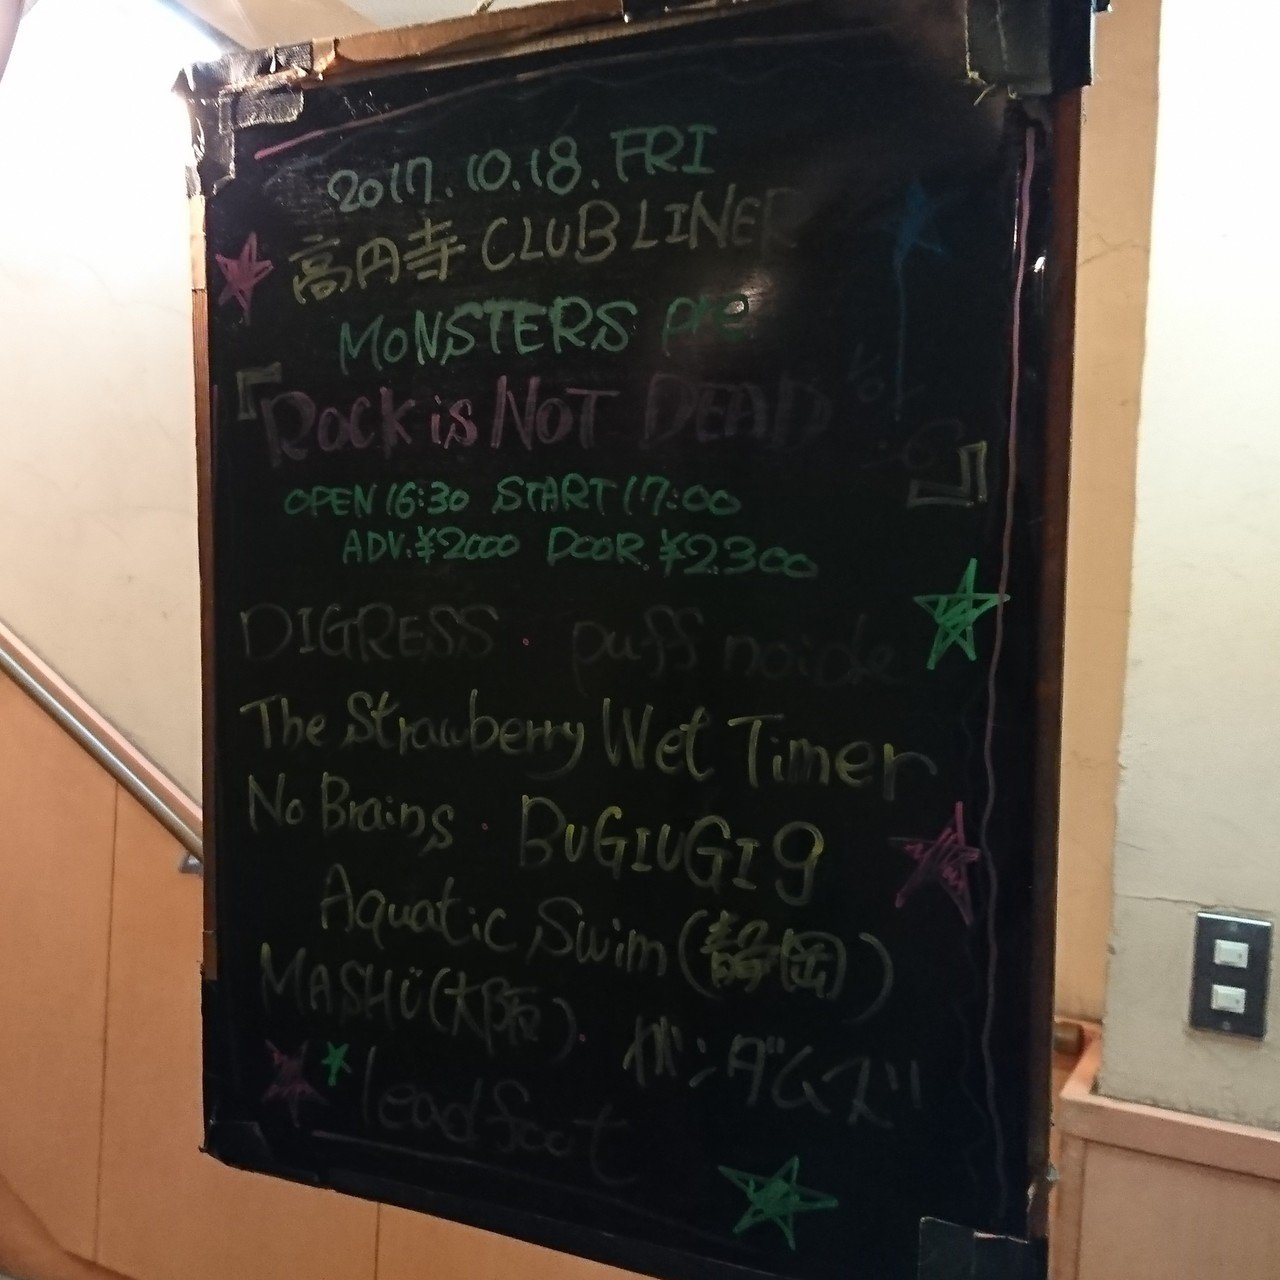 2017.10.18.FRI
高円寺 CLUB LINER
MONSTERS pre
『Rock is NOT DEAD
』
OPEN 16:30 START 17:00
ADV.¥2000 DOOR.¥2300
DIGRESS・puff noide
The Strawberry Wet Timer
No Brains・BUGIUGI9
Aquatic Swim(静岡)
MASHÜ(大阪)・ガンダムズ
leadfoot